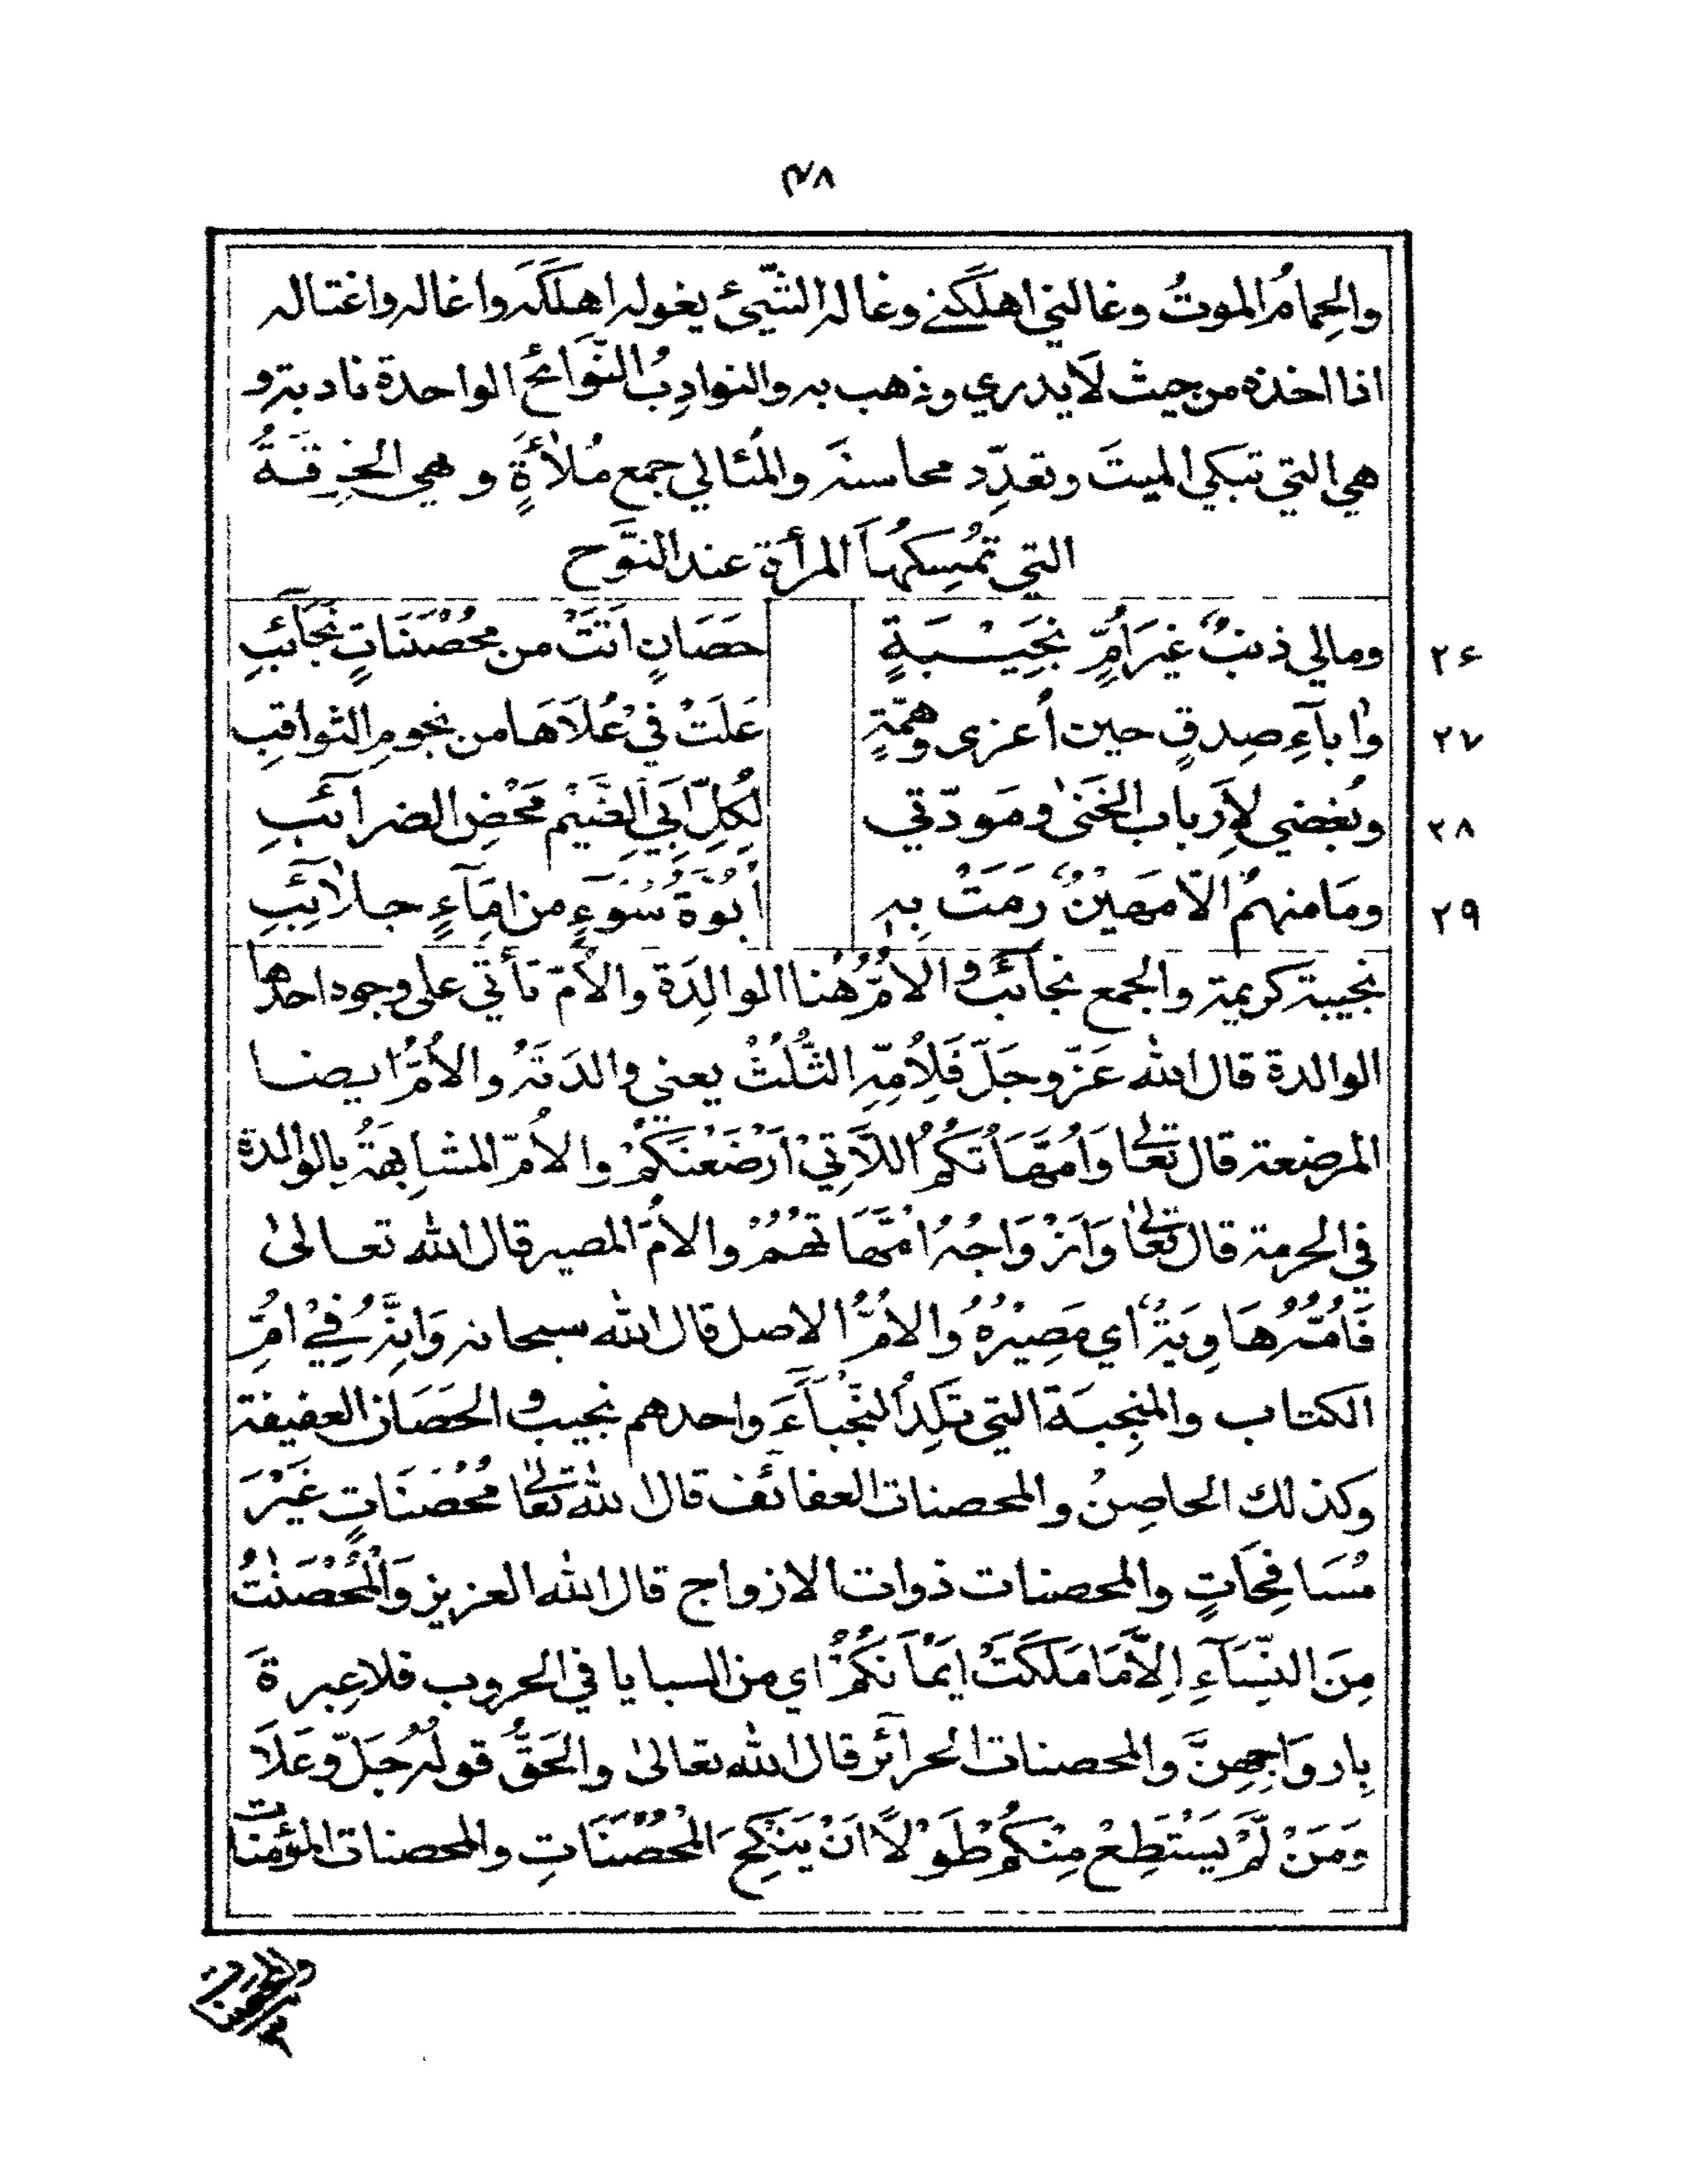 ٤٨
والحِمامُ الموتُ وغالني اهلكَني وغاله الشّيئ يغوله اهلَكَه واغاله واغتاله
اذا اخذه من حيث لا يدري وذهب به والنوادِبُ النّوائح الواحدة نادبة و
هي التي تبكي الميتَ وتعدِّد محاسنه والمَئالي جمع مُلأةٍ وهي الخِرقَةُ
التي تمُسِكهُا المرأة عند النَّوح
٢٦ ومالي ذنبٌ غيرَ اُمٍّ نجَيبَةٍ حَصَانٍ اَتَتْ من مُحْصَنَاتٍ نجَائبِ
٢٧ واٰباءِ صِدقٍ حين اُعزى وهمّةٍ عَلَتْ فيْ عُلاَهَا من نجومِ الثواقبِ
٢٨ وبُغضي لِأَرباب الخَنىٰ ومَودّتي لِكُلِّ اَبِيِ الضَّيْمِ مَحْضِ الضرائبِ
٢٩ ومَا منهمُ الاّ مَهيْنٌ رَمَتْ بِهٖ اُبُوّةُ سُوْءٍ من اِمَآءٍ جلائبِ
نجيبة كريمة والجمع نجائب والاُمُّ هُنا الوالِدَة والاُمّ تأتي على وجوه احدها
الوالدة قال الله عَزّ وجَلّ فَلِاُمِّهِ الثُّلُثُ يعني والدَتَهُ والاُمُّ ايضا
المرضعة قال تعالىٰ وَاُمَّهَاتُكُمُ اللاَّتِيْ اَرْضَعْنَكُمْ والاُمّ المشابهَةُ بالوالدة
في الحرمة قال تعالىٰ وَاَزْوَاجُهُ اُمَّهَاتُهُمْ والاُمّ المصير قال الله تعالىٰ
فَاُمُّهُ هَاوِيَةٌ اي مَصِيْرُهُ والاُمُّ الاصل قال الله سبحانه وَاِنَّهُ فِيْ اُمِّ
الكتاب والمنجِبَة التي تَلِدُ النُّجَباءَ واحدهم نجيب والحَصَان العفيفة
وكذلك الحاصِنُ والمحصنات العفائف قال الله تعالىٰ مُحْصَنَاتٍ غَيْرَ
مُسَافِحَاتٍ والمحصنات ذوات الازواج قال الله العزيز وَالْمُحْصَنٰتُ
مِنَ النِّسَآءِ اِلاَّ مَا مَلَكَتْ اَيْمَانُكُمْ اي من السبايا في الحروب فلا عِبرةَ
بِازواجِهِنَّ والمحصنات الحرائر قال الله تعالىٰ والحَقُّ قولُهُ جَلّ وعَلاَ
وَمَنْ لَّمْ يَسْتَطِعْ مِنْكُمْ طَوْلاً اَنْ يَنْكِحَ المُحْصَنَاتِ والمحصنات المؤمنات